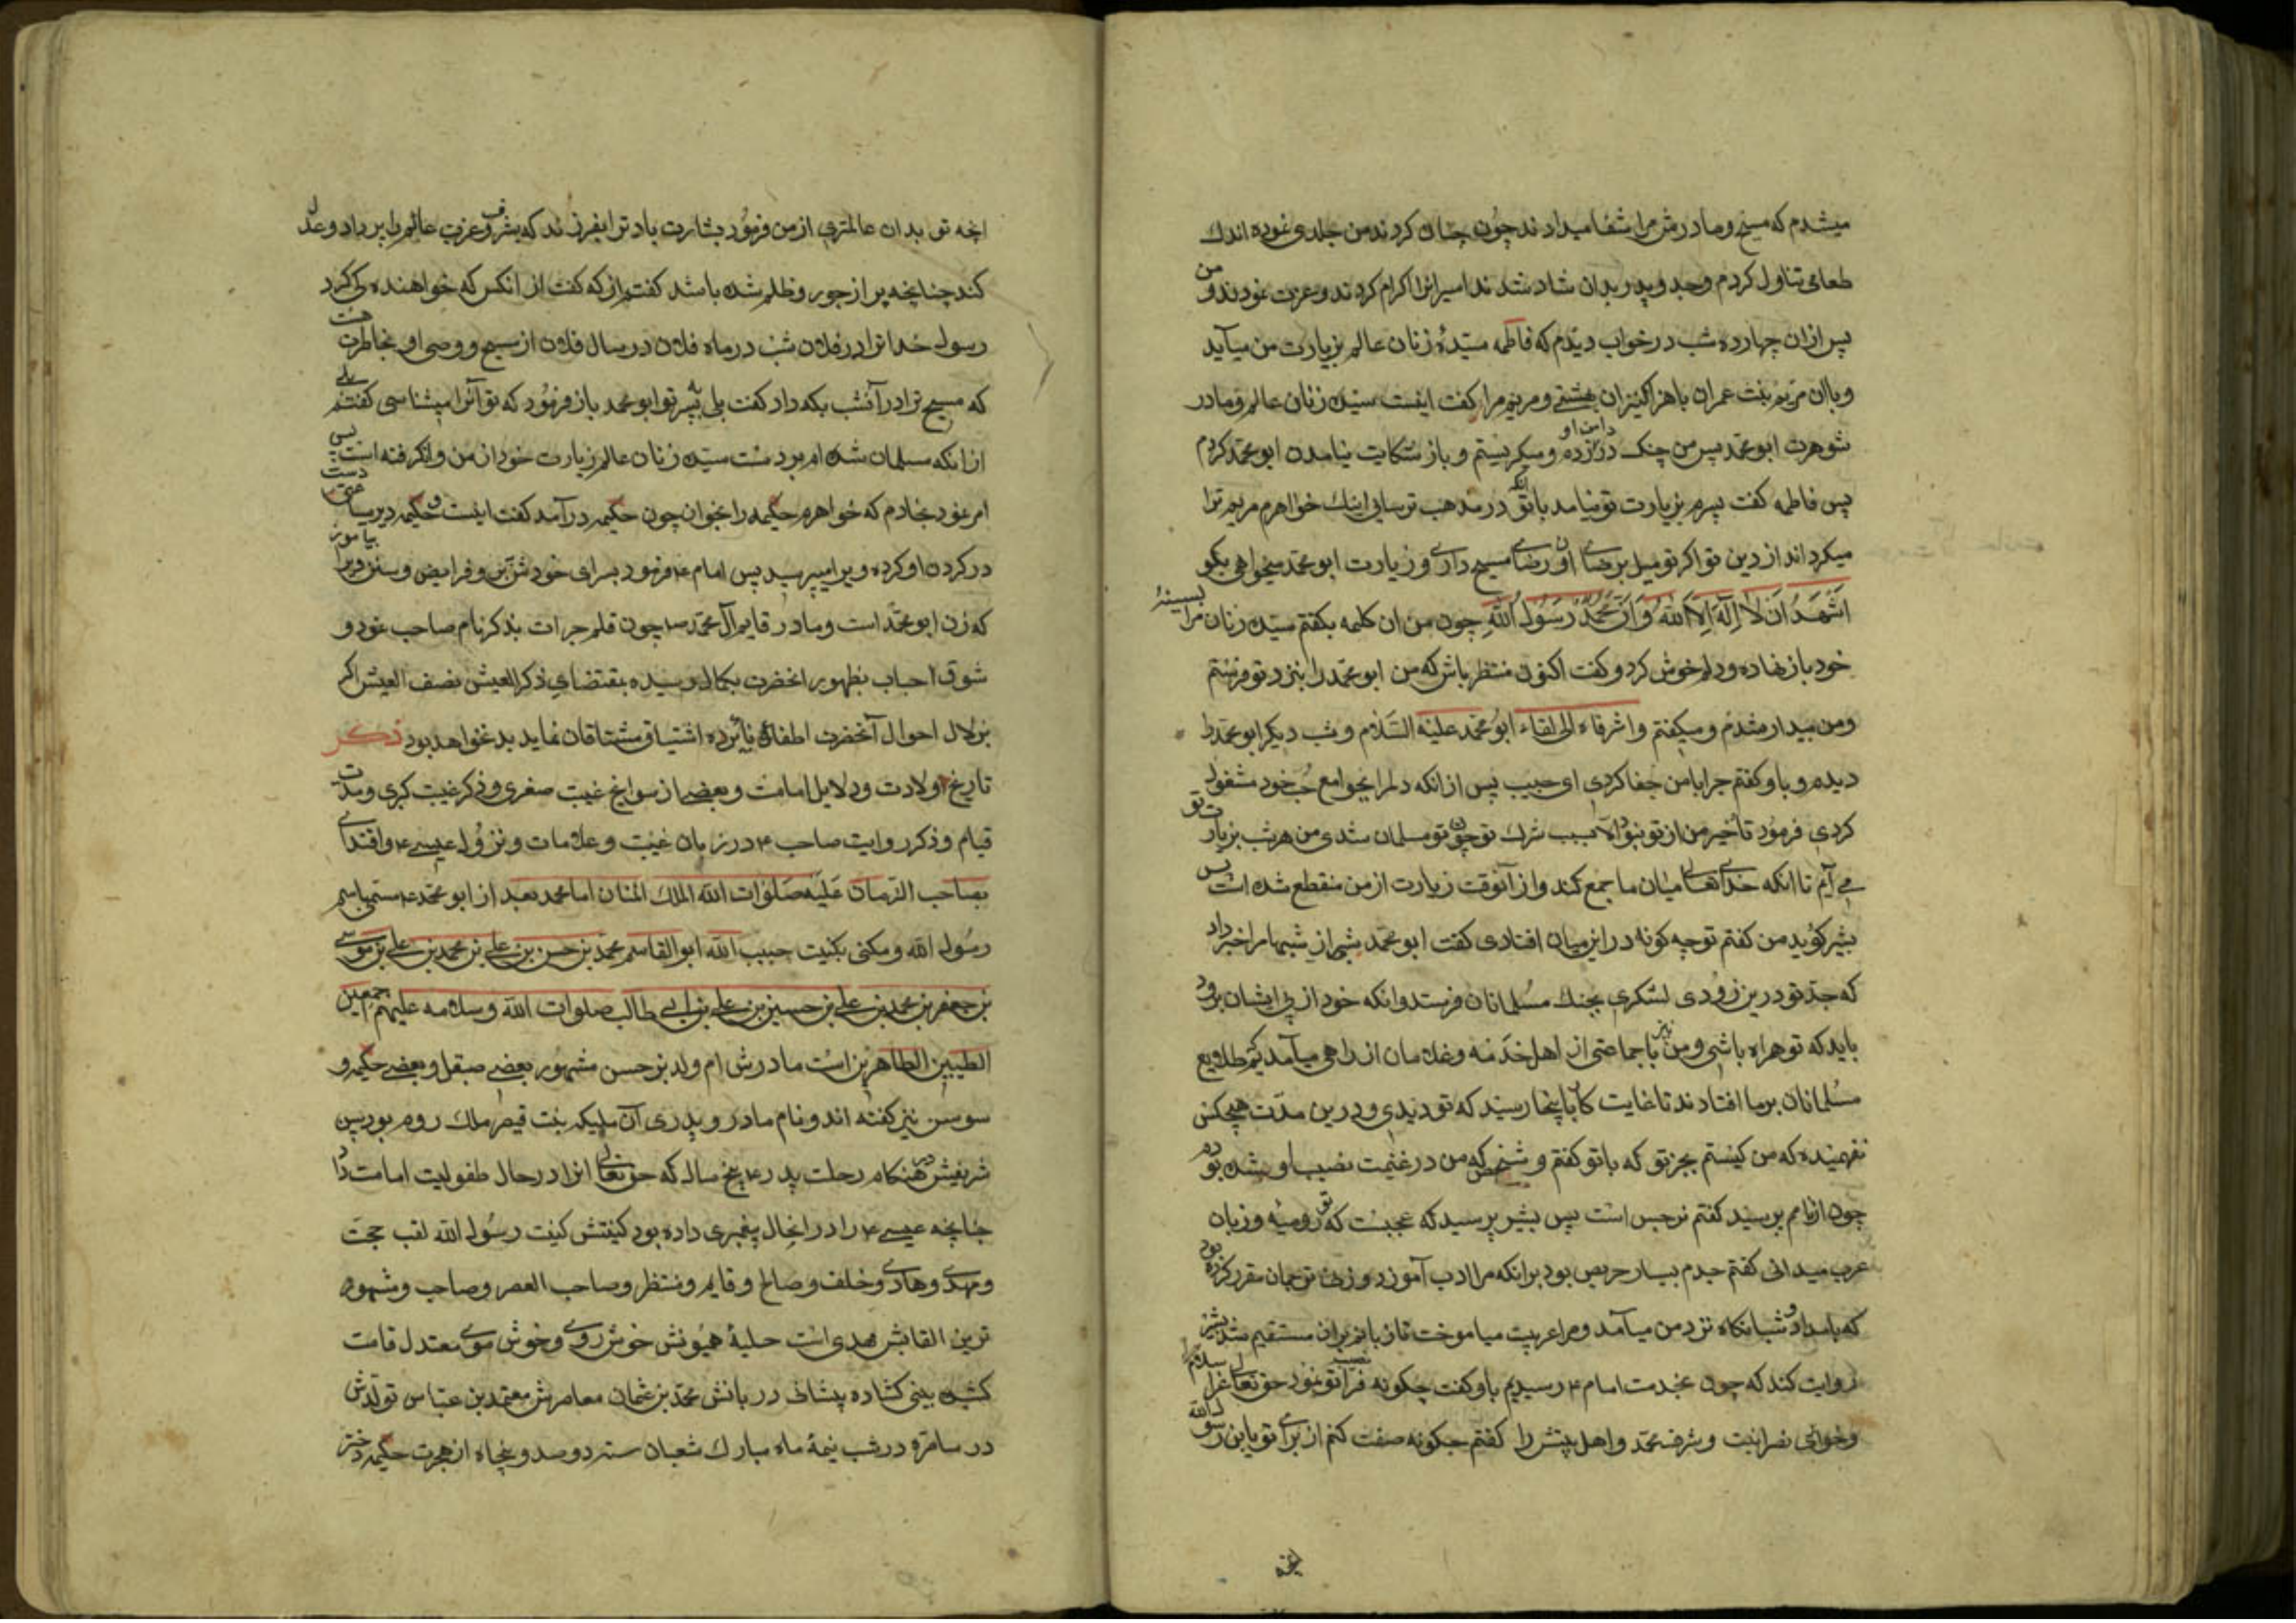 میشدم که مسیح و مادرش مرا شفا میدادند چون چنان کردند من جلدی نموده اندك
طعامی تناول کردم وجد و پدر بدان شاد شدند اسیرانرا اکرام کردند و عزت نمودند و من
پس ازان چهارده شب در خواب دیدم که فاطمه سیّدهٔ زنان عالم بزیارت من میآید
وباان مریم بنت عمران باهزار کنیزان بهشتی و مریم مرا کفت اینست سیّده زنان عالم و مادر
شوهرت ابو محمّد پس من چنک در دامن او زده و میکریستم و باز شکایت نیامدن ابو محمّد کردم
پس فاطمه کفت پسرم بزیارت تو نیامد باآنکه تو در مذهب ترسایی اینك خواهرم مریم ترا
میکرداند از دین تو اکر تو میل برضای او و رضای مسیح داری و زیارت ابو محمّد میخواهی بکو
اَشْهَدُ اَن لا اِلٰهَ اِلّا الله وَ اَنَّ مُحَمَّدٌ رَسُولُ اللّٰهِ چون من ان کلمه بکفتم سیّده زنان مرا بسینهٔ
خود باز نهاده و دلم خوش کرد و کفت اکنون منتظر باش که من ابو محمّد را بنزد تو فرستم
ومن بیدار شدم و میکفتم واشوقاه الی لقاء ابو محمّد علیه السَّلام و شب دیکر ابو محمّد را
دیدم و باو کفتم چرا بامن جفا کردی ای حبیب پس از انکه دلمرا بجوامع حُب خود مشغول
کردی فرمُود تأخیر من از تو نبود الّا بسبب شرك تو چون تو مسلمان شدی من هر شب بزیارت تو
می آیم تا انکه خدای تعالی میان ما جمع کند و از آنوقت زیارت از من منقطع نشده است پس
بشر کوید من کفتم تو چه کونه در این میان افتادی کفت ابو محمّد شبی از شبها مرا خبر داد
که جدّ تو درین زودی لشکری بجنك مسُلمانان فرستد و انکه خود از پی ایشان برود
باید که تو همراه باشی و من نیز با جماعتی از اهل خدَمه و غلامان از راهی میآمدیم طلایع
مسُلمانان برما افتادند تا غایت کار باینجا رسید که تو دیدی و درین مدّت هیچکس
نفهمیده که من کیستم بجز تو که باتو کفتم و شخصی که من در غنیمت نصیب او شده بودم
چون از نامم پرسید کفتم نرجس است پس بشیر پرسید که عجبست که تو رومیه و زبان
عرب میدانی کفتم جدم بسیار حریص بود بر انکه مرا ادب آموزد و زنی ترجمان مقرر کرده بود
که بامداد و شبانکاه نزد من میآمد و مرا عربیت میاموخت تا زبانم بران مستقیم شد بشر
روایت کند که چون بخدمت امام ع رسیدیم باو کفت چکونه تو نمود حق تعالی عز اسلام را
وخواری نصرانیت و شرف محمّد واهل بیتش را کفتم چکونه صفت کنم از برای تو یابن رسول الله
انچه تو بدان عالمتری از من فرمُود بشارت باد ترا بفرزندی که بشرف و عزت عالم را پر داد و عدل
کند چنانچه پر از جور و ظلم شده باشد کفتم از که کفت از انکس که خواهنده کی کرد
رسول خدا ترا در فلان شب در ماه فلان در سال فلان از مسیح و وصی او بخاطرت هست
که مسیح ترا در آنشب بکه داد کفت بلی بپسر تو ابو محمد باز فرمُود که تو آنرا میشناسی کفتم بلی
از انکه مسلمان شده ام بر دست سیّده زنان عالم زیارت خود از من وانکرفته است پس
امر نمود بخادم که خواهرم حکیمه را بخوان چون حکیمه درآمد کفت اینست و حکیمه دیر دست
در کردن او کرده ویرا میپرسید پس امام ع فرمود بسرای خودش بر و فرایض و سنن ویرا بیاموز
که زن ابو محمّد است و مادر قایم آل محمّد چون قلم جرات بذکر نام صاحب نمود و
شوق احباب بظهور انحضرت بکمال رسیده بقتضای ذکر العیش نصف العیش اکر
بزلال احوال آنحضرت اطفای نائره اشتیاق مشتاقان نماید بد نخواهد بود ذکر
تاریخ ولادت و دلایل امامت و بعضی از سوانح غیبت صغری و ذکر غیبت کبری و مدت
قیام و ذکر روایت صاحب ع در زمان غیبت و علامات و نزول عیسی ع و اقتدای
بصاحب الزمان عَلَیه صَلَوات الله الملك المنان امام محمد بعد از ابو محمّد ع مستمی باسم
رسُول الله و مکنی بکنیت حبیب الله ابو القاسم محمّد بن حسن بن علی بن محمد بن علی بن موسی
بن جعفر بن محمد بن علی بن حسین بن علی بن ابی طالب صلوات الله و سلامه علیهم اجمعین
الطیبین الطاهرین است مادرش ام ولد نرجس مشهور بعضی صیقل و بعضی حکیمه و
سوسن نیز کفته اند و نام مادر و پدری آن ملیکه بنت قیصر ملك روم بود پس
شریفش در هنکام رحلت پدر ع پنج سال که حق تعالی انرا در حال طفولیت امامت داد
چنانچه عیسی ع را در انحال پیغمبری داده بود کنیتش کنیت رسُول الله لقب حجت
ومهدی وهادی و خلف و صالح و قایم و منتظر و صاحب العصر و صاحب و مشهور
ترین القابش مهدی است حلیهٔ همیونش خوش روی و خوش موی معتدل قامت
کشیده بینی کشاده پیشانی دربانش محمّد بن عثمان معاصرش معتمد بن عباس تولّدش
در سامره در شب نیمهٔ ماه مبارك شعبان سنه دو صد و پنجاه از هجرت حکیمه دختر